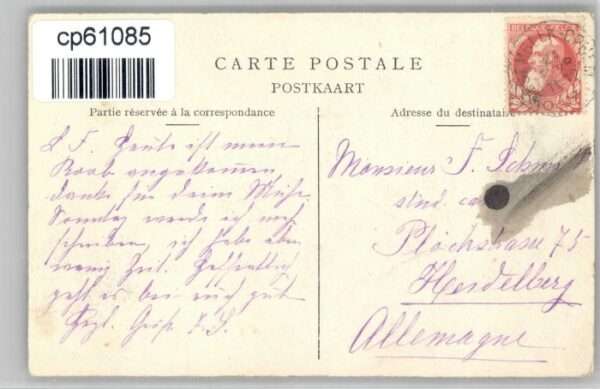 cp61085
CARTE POSTALE
POSTKAART
Partie réservée à la correspondance
Adresse du destinataire
L F. Heute ist mein
Korb angekommen
danke für deine Mühe.
Sonntag werde ich noch
schreiben, ich habe aber
wenig Zeit. Hoffentlich
geht es bei euch gut
Hrzl. F. S.
Monsieur F.
stud.
Plöckstrasse 75
Heidelberg
Allemagne